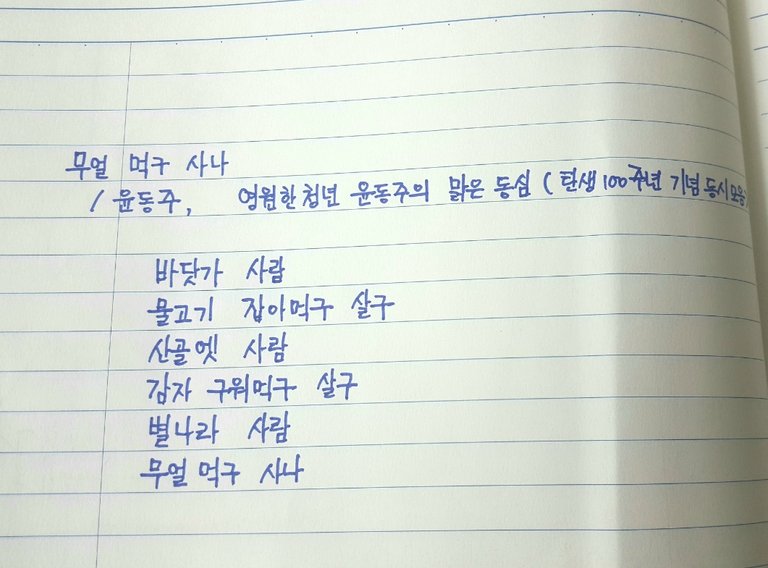 무얼 먹구 사나
/ 윤동주, 영원한 청년 윤동주의 맑은 동심 ( 탄생 100주년 기념 동시모음)
바닷가 사람
물고기 잡아먹구 살구
산골엣 사람
감자 구워먹구 살구
별나라 사람
무얼 먹구 사나